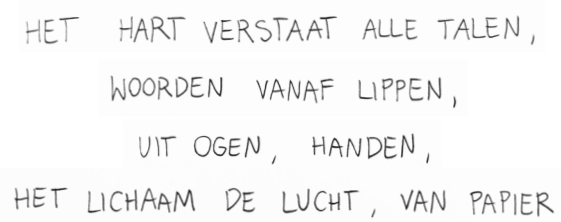 HET HART VERSTAAT ALLE TALEN,
WOORDEN VANAF LIPPEN,
UIT OGEN, HANDEN,
HET LICHAAM DE LUCHT, VAN PAPIER